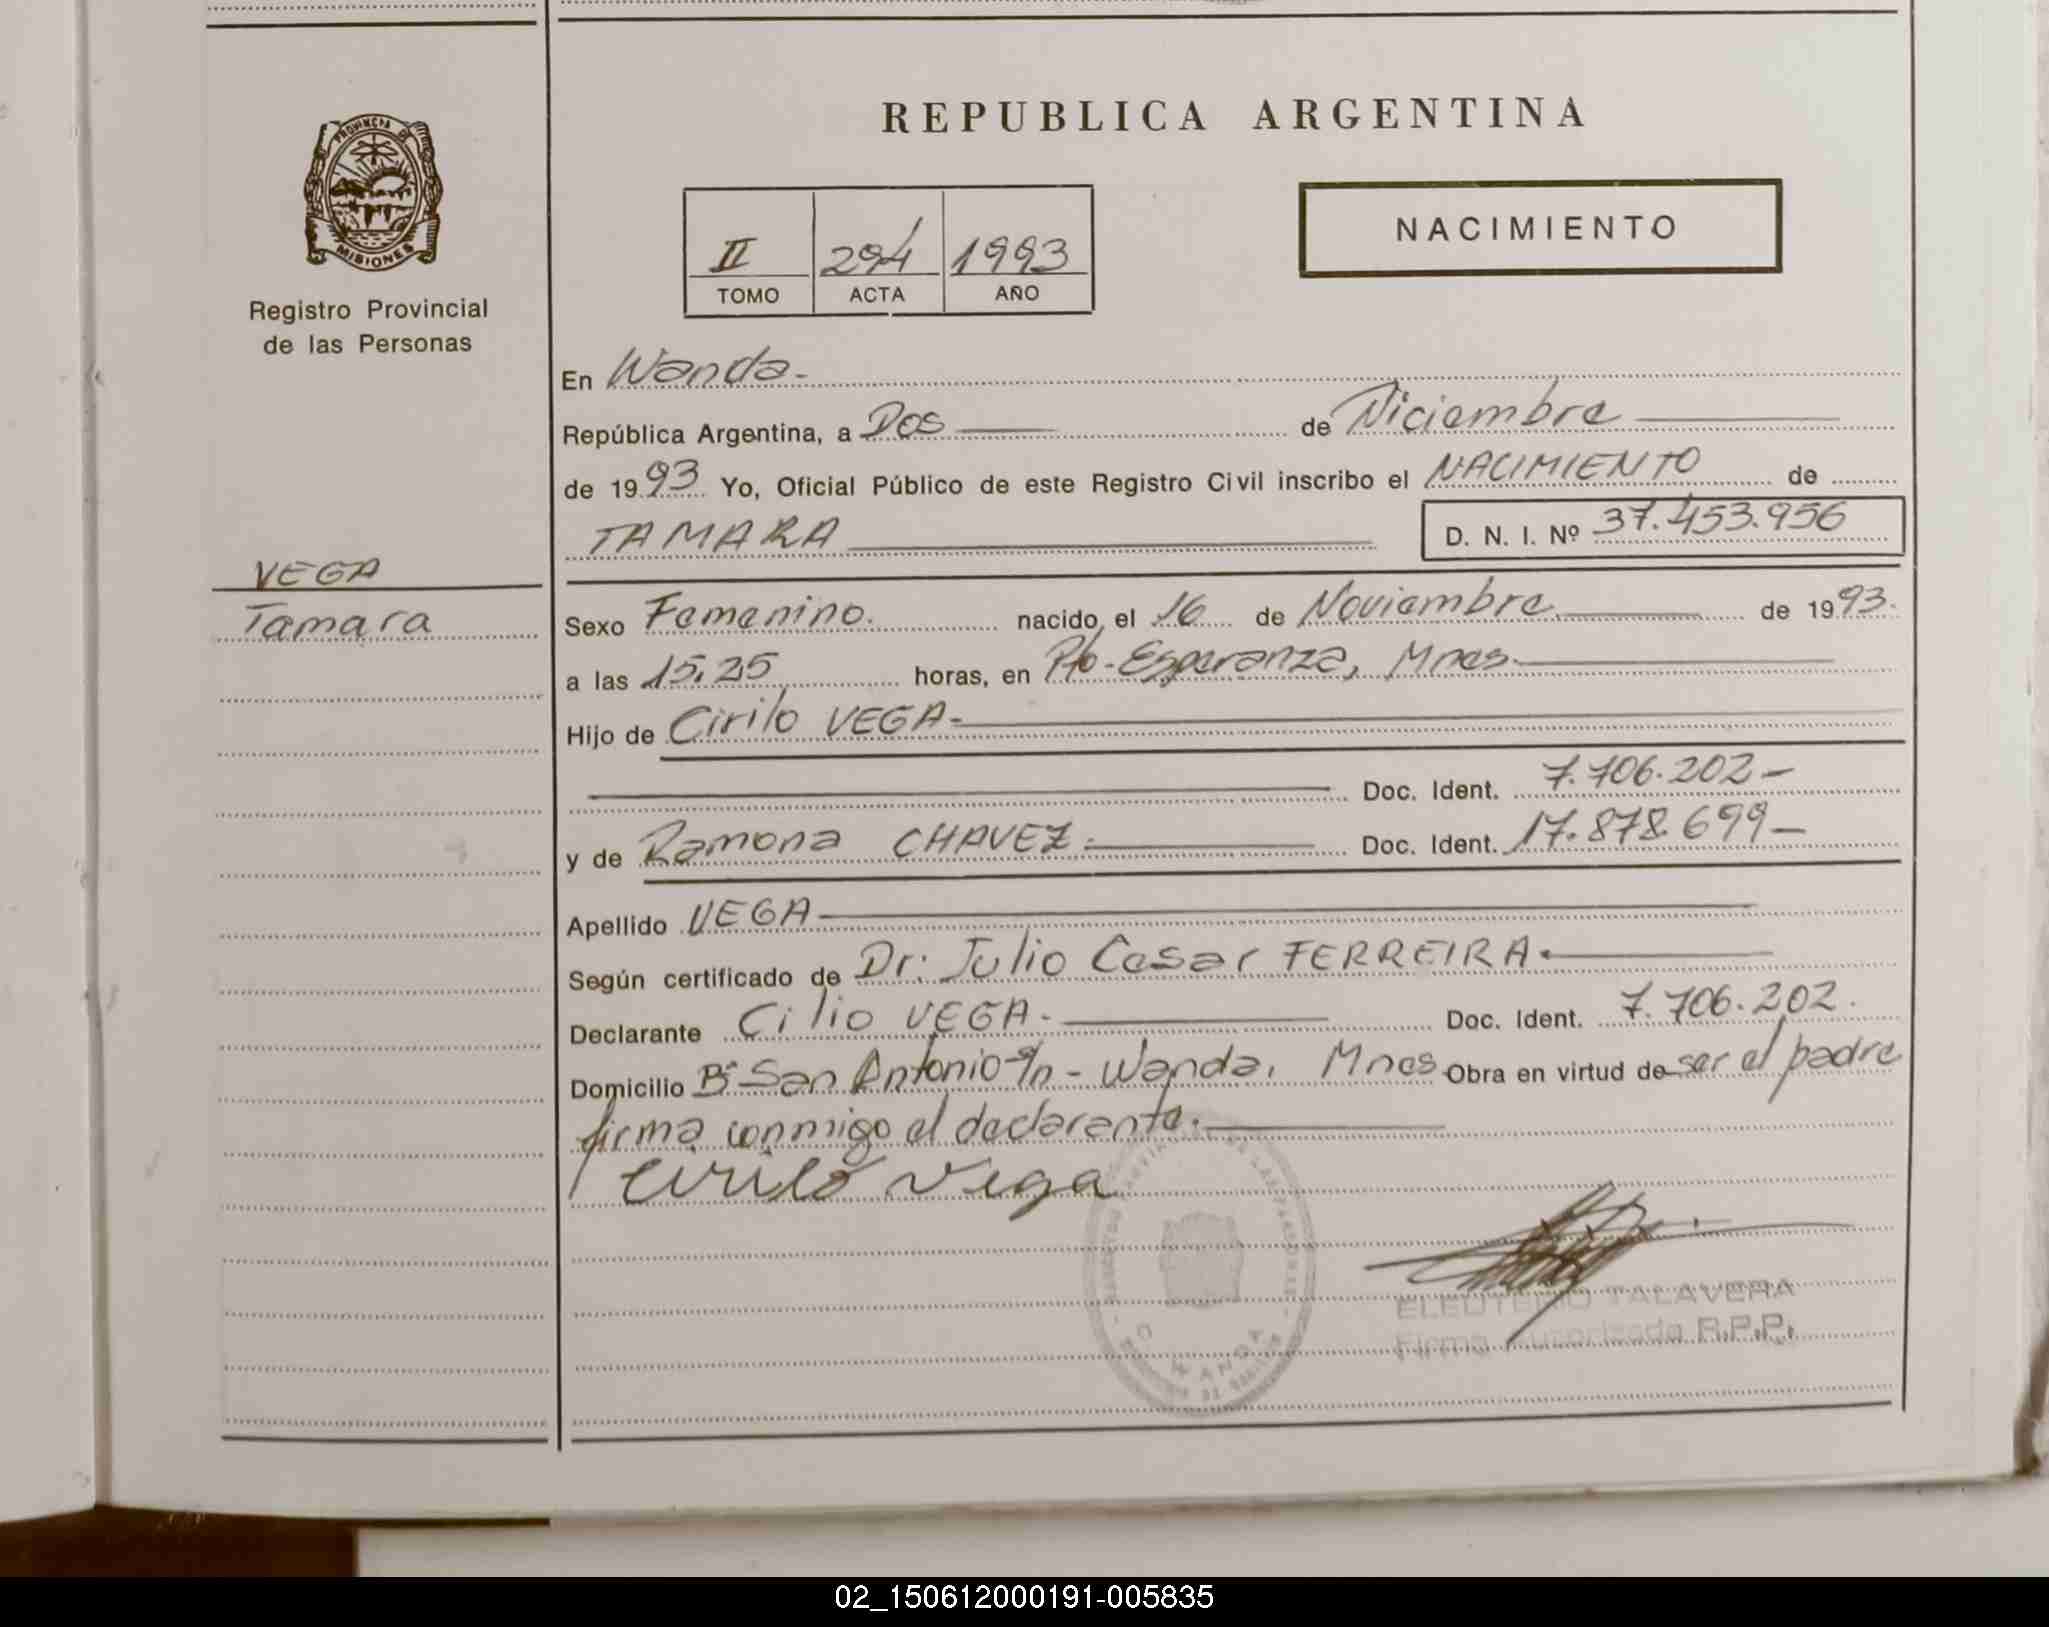 PROVINCIA DE
MISIONES
Registro Provincial
de las Personas
VEGA
Tamara
REPUBLICA ARGENTINA
NACIMIENTO
II 294 1993
TOMO ACTA AÑO
En Wanda.-
República Argentina, a Dos de Diciembre
de 1993 Yo, Oficial Público de este Registro Civil inscribo el NACIMIENTO de
TAMARA D. N. I. Nº 37.453.956
Sexo Femenino. nacido el 16 de Noviembre de 1993.
a las 15,25 horas, en Pto. Esperanza, Mnes.
Hijo de Cirilo VEGA-
Doc. Ident. 7.706.202-
y de Ramona CHAVEZ. Doc. Ident. 17.878.699-
Apellido VEGA
Según certificado de Dr: Julio Cesar FERREIRA.
Declarante Cilio VEGA. Doc. Ident. 7.706.202.
Domicilio Bº San Antonio s/n - Wanda, Mnes. Obra en virtud de ser el padre
firma conmigo el declarante.
Cirilo Vega
WANDA
ELEUTERIO TALAVERA
Firma Autorizada R.P.P.
02_150612000191-005835